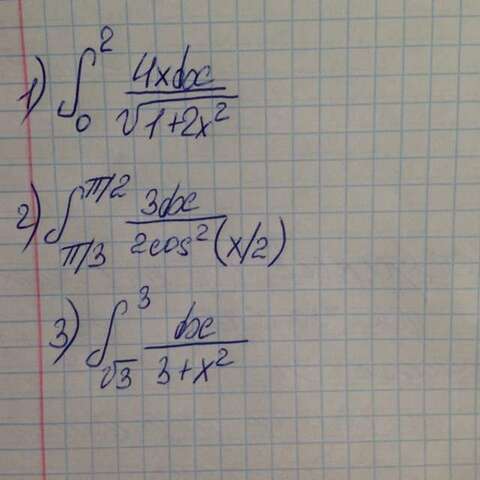 1) ∫₀² 4xdx / √(1+2x²)
2) ∫_{π/3}^{π/2} 3dx / 2cos²(x/2)
3) ∫_{√3}^{3} dx / 3+x²